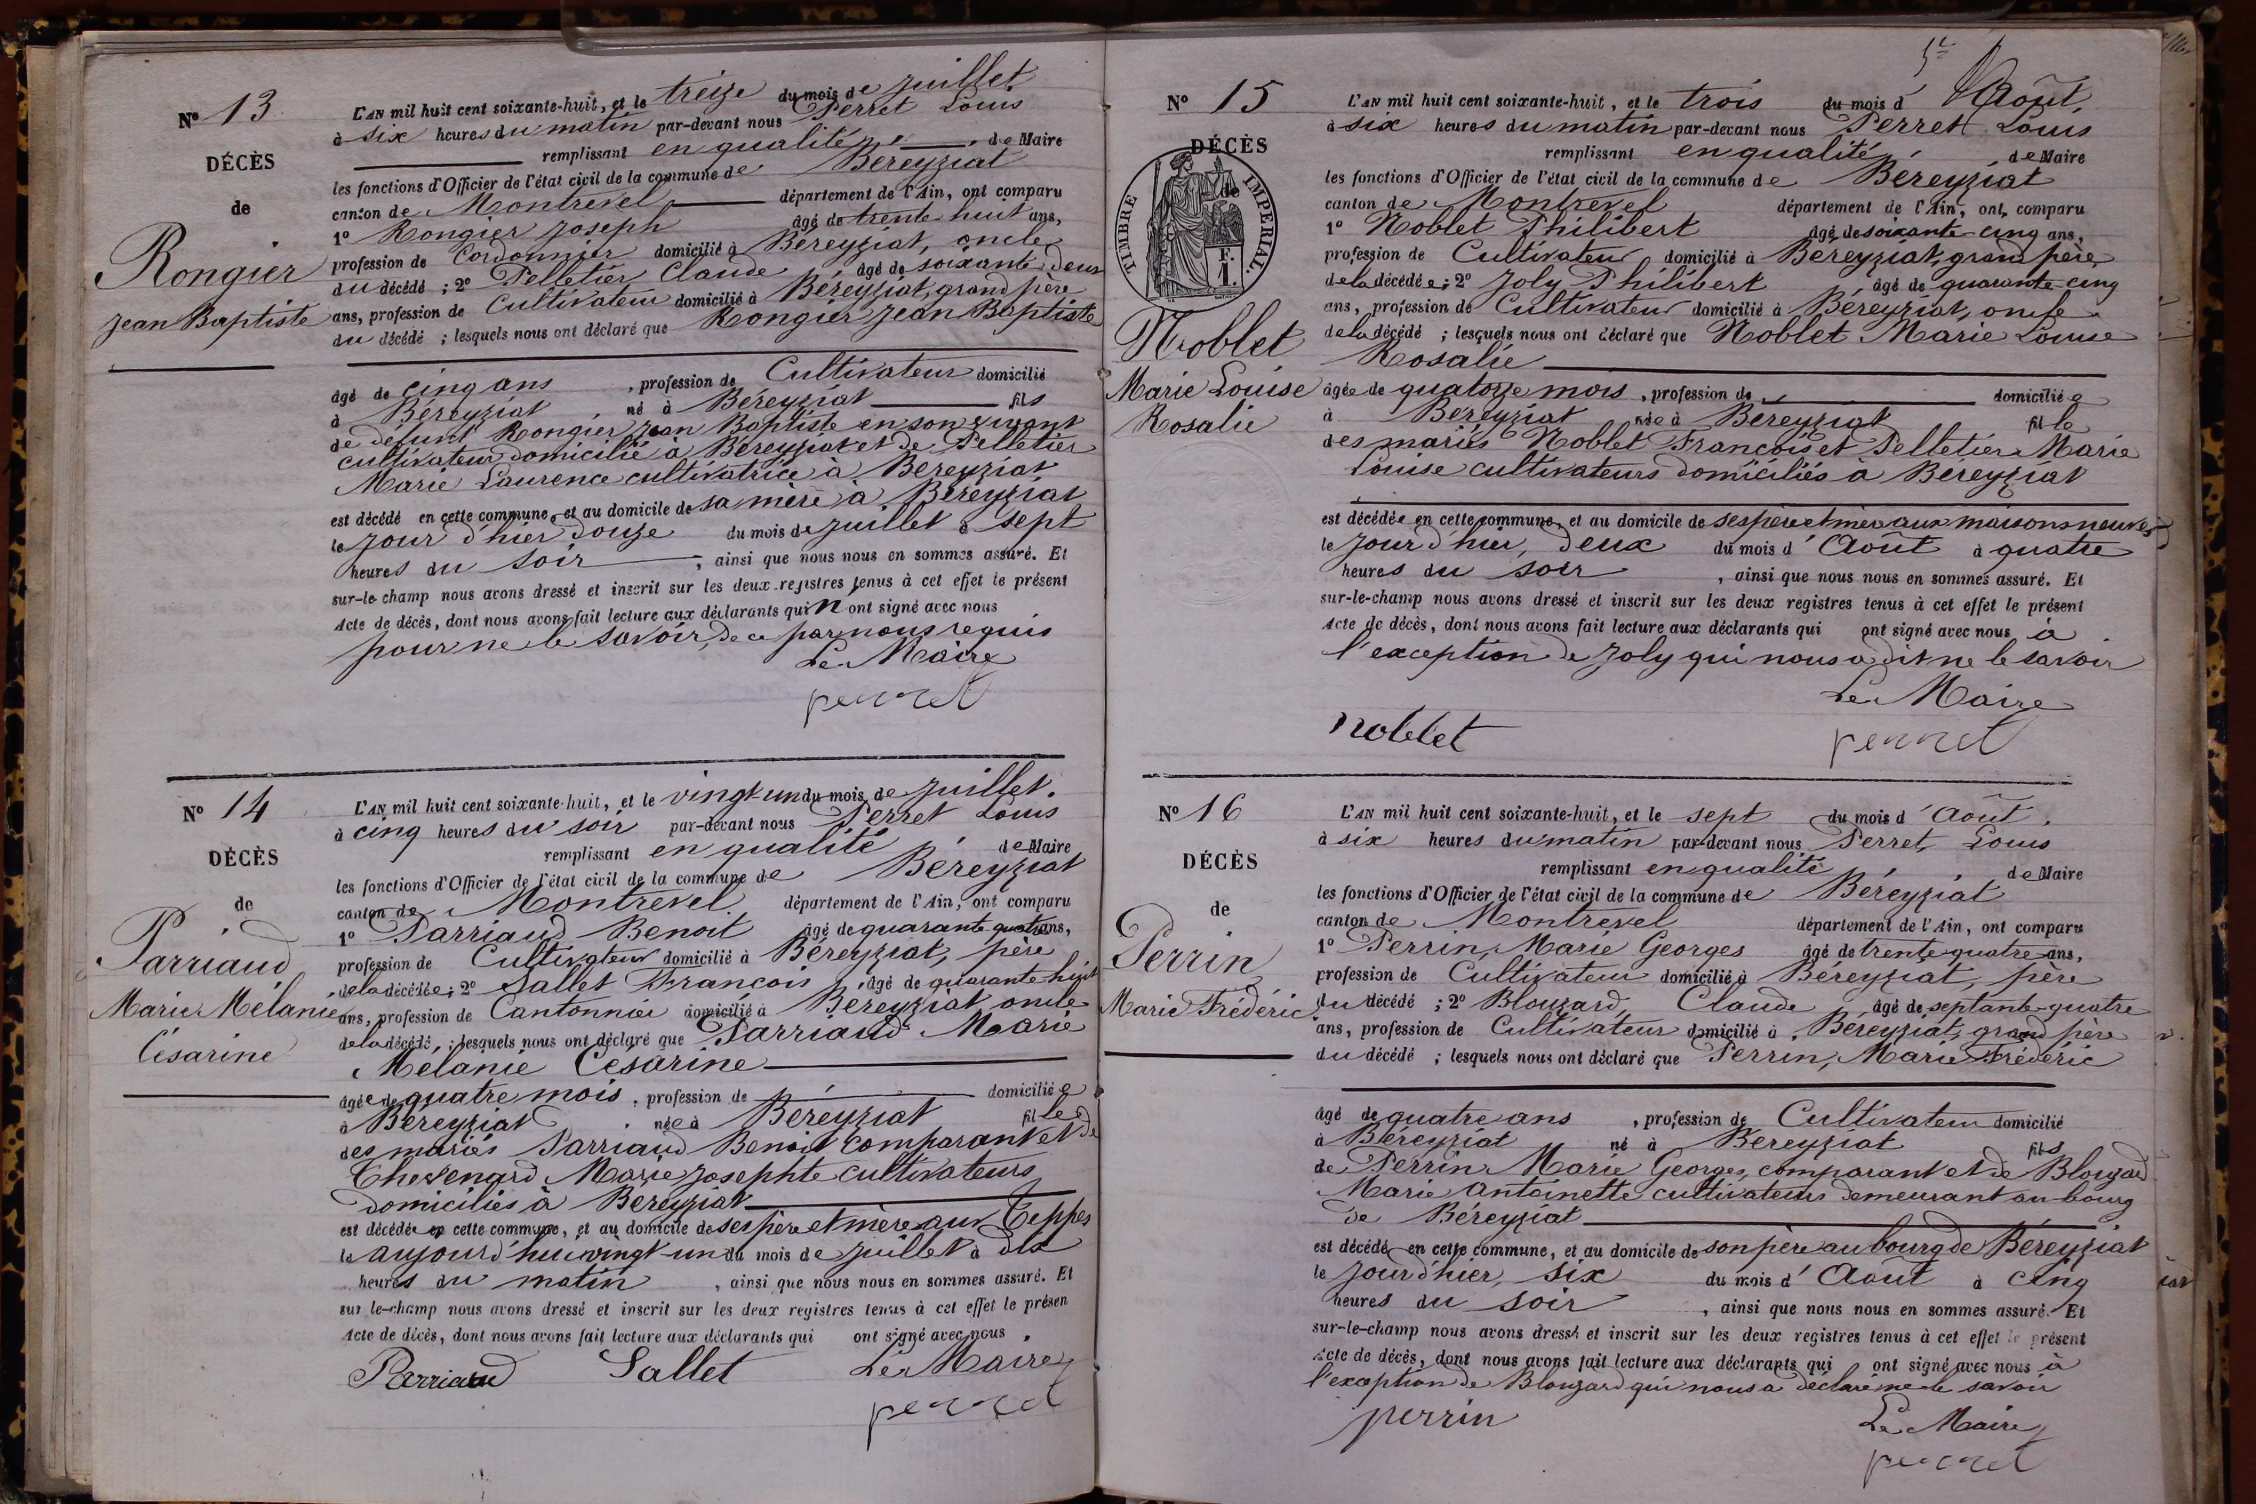 Nº 13
DÉCÈS
de
Rongier
Jean Baptiste
L'AN mil huit cent soixante-huit, et le treize du mois de juillet
à six heures du matin par-devant nous Perret Louis
remplissant en qualité de Maire
les fonctions d'Officier de l'état civil de la commune de Béreyziat
canton de Montrevel département de l'Ain, ont comparu
1º Rongier Joseph âgé de trente huit ans,
profession de Cordonnier domicilié à Béreyziat, oncle
du décédé ; 2º Pelletier Claude âgé de soixante deux
ans, profession de Cultivateur domicilié à Béreyziat, grand père
du décédé ; lesquels nous ont déclaré que Rongier Jean Baptiste
âgé de cinq ans, profession de Cultivateur domicilié
à Béreyziat, né à Béreyziat fils
de défunt Rongier Jean Baptiste en son vivant
cultivateur domicilié à Béreyziat et de Pelletier
Marie Laurence cultivatrice à Béreyziat
est décédé en cette commune, et au domicile de sa mère à Béreyziat
le jour d'hier douze du mois de juillet à sept
heures du soir, ainsi que nous nous en sommes assuré. Et
sur-le-champ nous avons dressé et inscrit sur les deux registres tenus à cet effet le présent
Acte de décès, dont nous avons fait lecture aux déclarants qui n'ont signé avec nous
pour ne le savoir, de ce par nous requis
Le Maire
perret
Nº 14
DÉCÈS
de
Parriaud
Marie Mélanie
Césarine
L'AN mil huit cent soixante-huit, et le vingt-un du mois de juillet.
à cinq heures du soir par-devant nous Perret Louis
remplissant en qualité de Maire
les fonctions d'Officier de l'état civil de la commune de Béreyziat
canton de Montrevel département de l'Ain, ont comparu
1º Parriaud Benoit âgé de quarante quatre ans,
profession de Cultivateur domicilié à Béreyziat, père
de la décédée ; 2º Sallet François âgé de quarante-huit
ans, profession de Cantonnier domicilié à Béreyziat oncle
de la décédé, ; lesquels nous ont déclaré que Parriaud Marie
Mélanie Césarine
âgée de quatre mois, profession de domiciliée
à Béreyziat, née à Béreyziat fille
des mariés Parriaud Benoit comparant et de
Chevenard Marie Josephte cultivateurs
domiciliés à Béreyziat
est décédée en cette commune, et au domicile de ses père et mère aux Teppes
le aujourd'hui vingt-un du mois de juillet à dix
heures du matin, ainsi que nous nous en sommes assuré. Et
sur le-champ nous avons dressé et inscrit sur les deux registres tenus à cet effet le présen
Acte de décès, dont nous avons fait lecture aux déclarants qui ont signé avec nous.
Parriaud Sallet Le Maire
perret
5e
Nº 15
DÉCÈS
de
TIMBRE IMPÉRIAL
F.
1.
Noblet
Marie Louise
Rosalie
L'AN mil huit cent soixante-huit, et le trois du mois d'Août.
à six heures du matin par-devant nous Perret Louis
remplissant en qualité de Maire
les fonctions d'Officier de l'état civil de la commune de Béreyziat
canton de Montrevel département de l'Ain, ont comparu
1º Noblet Philibert âgé de soixante-cinq ans,
profession de Cultivateur domicilié à Béreyziat, grand père,
de la décédée ; 2º Joly Philibert âgé de quarante-cinq
ans, profession de Cultivateur domicilié à Béreyziat, oncle
de la décédé ; lesquels nous ont déclaré que Noblet Marie Louise
Rosalie
âgée de quatorze mois, profession de domiciliée
à Béreyziat née à Béreyziat fille
des mariés Noblet François et Pelletier Marie
Louise cultivateurs domiciliés à Béreyziat
est décédée en cette commune, et au domicile de ses père et mère aux maisons neuves
le jour d'hier, deux du mois d'Août à quatre
heures du soir, ainsi que nous nous en sommes assuré. Et
sur-le-champ nous avons dressé et inscrit sur les deux registres tenus à cet effet le présent
Acte de décès, dont nous avons fait lecture aux déclarants qui ont signé avec nous à
l'exception de Joly qui nous a dit ne le savoir
Le Maire
noblet perret
Nº 16
DÉCÈS
de
Perrin
Marie Frédéric
L'AN mil huit cent soixante-huit, et le sept du mois d'Août.
à six heures du matin par-devant nous Perret Louis
remplissant en qualité de Maire
les fonctions d'Officier de l'état civil de la commune de Béreyziat
canton de Montrevel département de l'Ain, ont comparu
1º Perrin, Marie Georges âgé de trente-quatre ans,
profession de Cultivateur domicilié à Béreyziat, père
du décédé ; 2º Blouzard, Claude âgé de septante-quatre
ans, profession de Cultivateur domicilié à Béreyziat, grand père
du décédé ; lesquels nous ont déclaré que Perrin, Marie Frédéric
âgé de quatre ans, profession de Cultivateur domicilié
à Béreyziat né à Béreyziat fils
de Perrin Marie Georges, comparant et de Blouzard
Marie Antoinette cultivateurs demeurant au bourg
de Béreyziat
est décédé en cette commune, et au domicile de son père au bourg de Béreyziat
le jour d'hier, six du mois d'Août à cinq
heures du soir, ainsi que nous nous en sommes assuré. Et
sur-le-champ nous avons dressé et inscrit sur les deux registres tenus à cet effet le présent
Acte de décès, dont nous avons fait lecture aux déclarants qui ont signé avec nous à
l'exception de Blouzard qui nous a déclaré ne le savoir
perrin Le Maire
perret